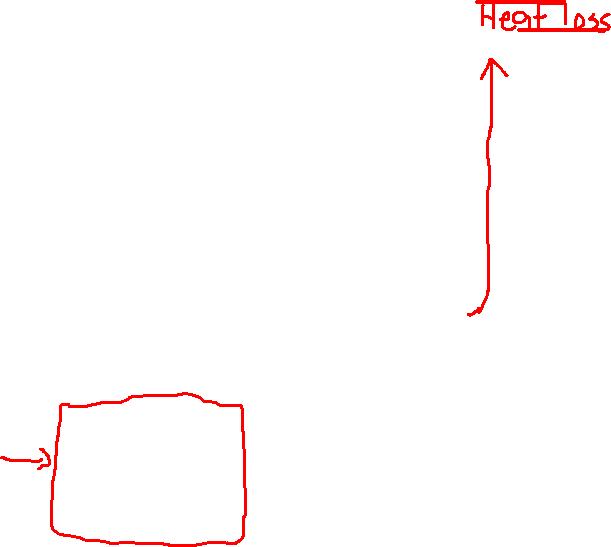 Heat loss